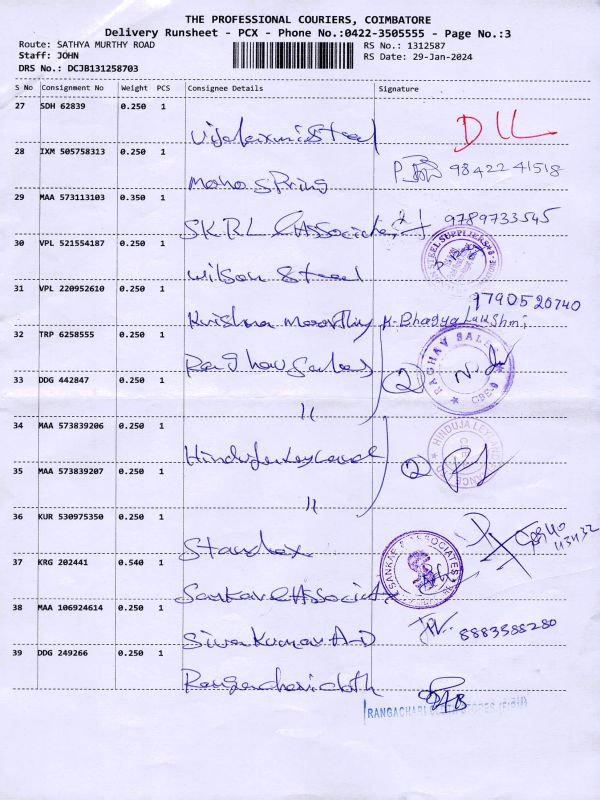 THE PROFESSIONAL COURIERS, COIMBATORE
Delivery Runsheet - PCX - Phone No.:0422-3505555 - Page No.:3
Route: SATHYA MURTHY ROAD RS No.: 1312587
Staff: JOHN RS Date: 29-Jan-2024
DRS No.: DCJB131258703
S No Consignment No Weight PCS Consignee Details Signature
27 SDH 62839 0.250 1
Vijalaxmi Steel DIL
28 IXM 505758313 0.250 1
Moho Spring 98422 41518
29 MAA 573113103 0.350 1
SKRL & Associates 9789733545
30 VPL 521554187 0.250 1
STEEL SUPPLIERS
Wilson Steel
31 VPL 220952610 0.250 1
9790520740
Krishna Moorthy K. Bhagya Lakshmi
32 TRP 6258555 0.250 1
Raghav Sales 2 RAGHAV SALES CBE-9
33 DDG 442847 0.250 1
"
34 MAA 573839206 0.250 1
Hinduja Leyland 2 HINDUJA LEYLAND
35 MAA 573839207 0.250 1
"
36 KUR 530975350 0.250 1
Standox
37 KRG 202441 0.540 1
Sankar & Associate SANKAR & ASSOCIATES
38 MAA 106924614 0.250 1
Siva Kumar A.D 8883588280
39 DDG 249266 0.250 1
Rangachari cloth
RANGACHARI CLOTH STORES